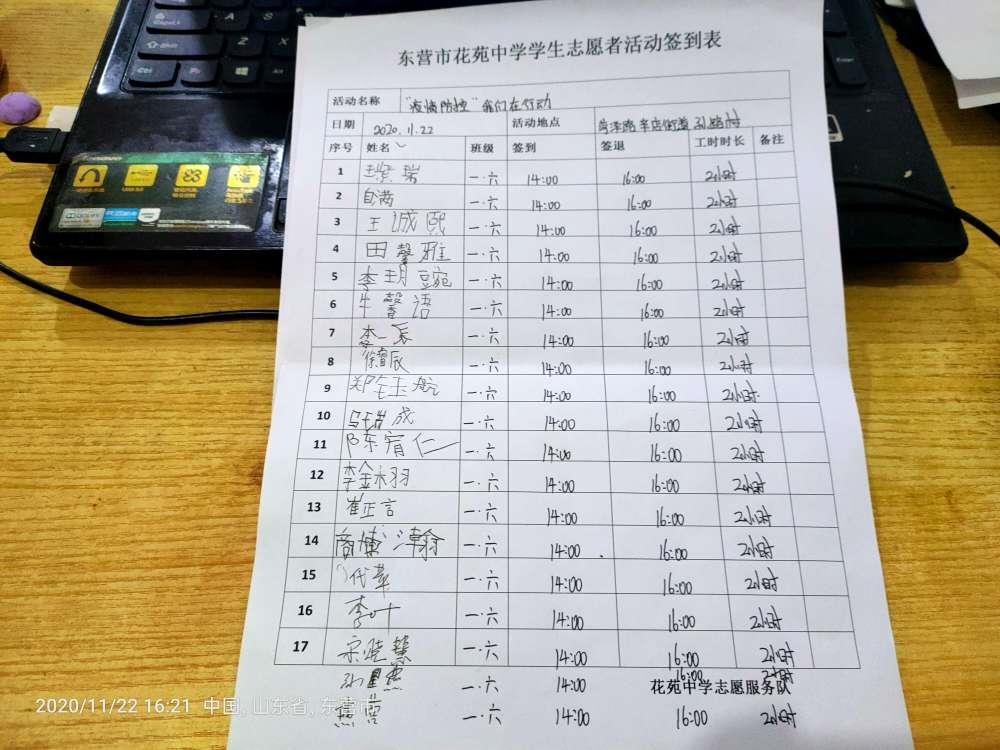 东营市花苑中学学生志愿者活动签到表
活动名称 "疫情防控"我们在行动
日期 2020.11.22 活动地点 辛店街道
序号 姓名 班级 签到 签退 工时时长 备注
1 瑞 一.六 14:00 16:00 2小时
2 一.六 14:00 16:00 2小时
3 王诚熙 一.六 14:00 16:00 2小时
4 田馨雅 一.六 14:00 16:00 2小时
5 李玥豌 一.六 14:00 16:00 2小时
6 牛馨语 一.六 14:00 16:00 2小时
7 李一 一.六 14:00 16:00 2小时
8 徐睿辰 一.六 14:00 16:00 2小时
9 郑钰航 一.六 14:00 16:00 2小时
10 成 一.六 14:00 16:00 2小时
11 陈宥仁 一.六 14:00 16:00 2小时
12 李金羽 一.六 14:00 16:00 2小时
13 崔正言 一.六 14:00 16:00 2小时
14 商博瀚 一.六 14:00 16:00 2小时
15 代苹 一.六 14:00 16:00 2小时
16 李叶 一.六 14:00 16:00 2小时
17 宋晓慧 一.六 14:00 16:00 2小时
一.六 14:00 16:00 2小时
花苑中学志愿服务队
一.六 14:00 16:00 2小时
2020/11/22 16:21 中国, 山东省, 东营市